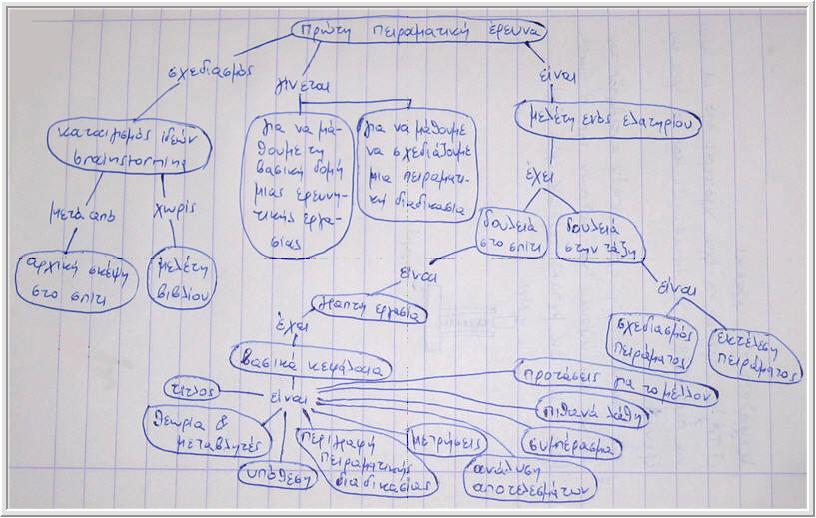 πρώτη πειραματική έρευνα
σχεδιασμός
γίνεται
είναι
καταιγισμός ιδεών
brainstorming
για να μά-
θουμε τη
βασική δομή
μιας ερευνη-
τικής εργα-
σίας
για να μάθουμε
να σχεδιάζουμε
μια πειραματι-
κή διαδικασία
μελέτη ενός ελατηρίου
έχει
μετά από
χωρίς
αρχική σκέψη
στο σπίτι
μελέτη
βιβλίου
δουλειά
στο σπίτι
δουλειά
στην τάξη
είναι
είναι
γραπτή εργασία
σχεδιασμός
πειράματος
εκτέλεση
πειράματος
έχει
βασικά κεφάλαια
είναι
τίτλος
θεωρία &
μεταβλητές
υπόθεση
περιγραφή
πειραματικής
διαδικασίας
μετρήσεις
ανάλυση
αποτελεσμάτων
συμπέρασμα
πιθανά λάθη
προτάσεις για το μέλλον